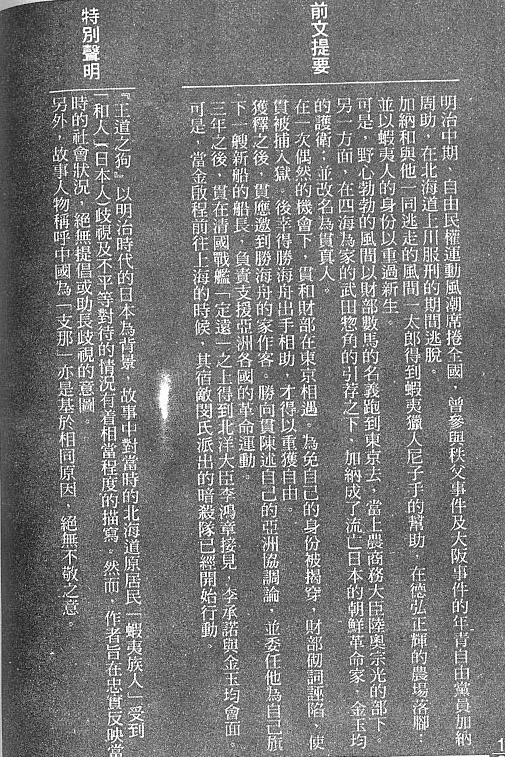 前文提要
明治中期、自由民權運動風潮席捲全國，曾參與秩父事件及大阪事件的年青自由黨員加納
周助，在北海道上川服刑的期間逃脫。
加納和與他一同逃走的風間一太郎得到蝦夷獵人尼子手的幫助，在德弘正輝的農場落腳；
並以蝦夷人的身份以重過新生。
可是，野心勃勃的風間以財部數馬的名義跑到東京去，當上農商務大臣陸奧宗光的部下。
另一方面，在四海為家的武田惣角的引荐之下，加納成了流亡日本的朝鮮革命家，金玉均
的護衛；並改名為貫真人。
在一次偶然的機會下，貫和財部在東京相遇。為免自己的身份被揭穿，財部砌詞誣陷，使
貫被捕入獄。後幸得勝海舟出手相助，才得以重獲自由。
獲釋之後，貫應邀到勝海舟的家作客。勝向貫陳述自己的亞洲協調論，並委任他為自己旗
下一艘新船的船長，負責支援亞洲各國的革命運動。
三年之後，貫在清國戰艦「定遠」之上得到北洋大臣李鴻章接見，李承諾與金玉均會面。
可是，當金啟程前往上海的時候，其宿敵閔氏派出的暗殺隊已經開始行動。
特別聲明
『王道之狗』以明治時代的日本為背景，故事中對當時的北海道原居民「蝦夷族人」受到
「和人」（日本人）歧視及不平等對待的情況有着相當程度的描寫。然而，作者旨在忠實反映當
時的社會狀況，絕無提倡或助長歧視的意圖。
另外，故事人物稱呼中國為「支那」亦是基於相同原因，絕無不敬之意。
1